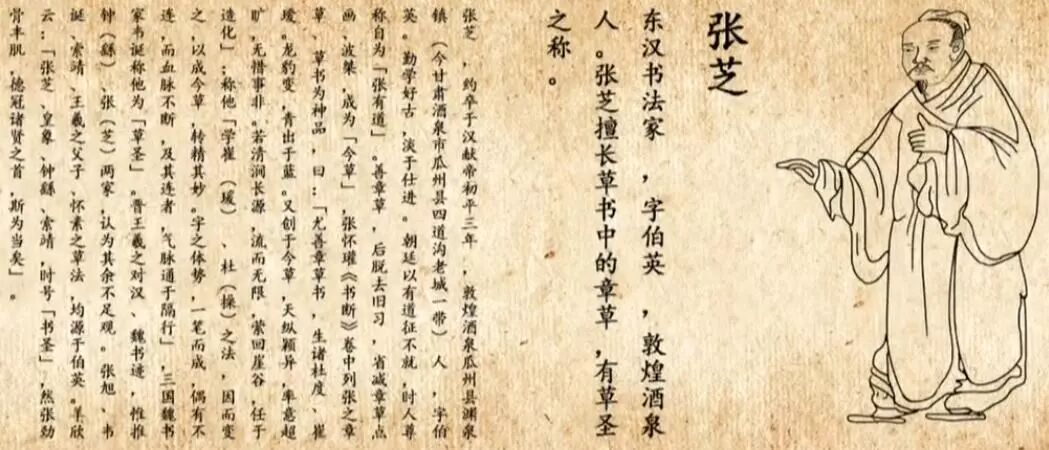 张芝
东汉书法家，字伯英，敦煌酒泉
人。张芝擅长草书中的章草，有草圣
之称。
张芝，约卒于汉献帝初平三年，敦煌酒泉瓜州县渊泉
镇（今甘肃酒泉市瓜州县四道沟老城一带）人，字伯
英。勤学好古，淡于仕进。朝廷以有道征不就，时人尊
称自为「张有道」。善章草，后脱去旧习，省减章草点
画、波桀，成为「今草」，张怀瓘《书断》卷中列张之章
草、草书为神品，曰：「尤善章草书，生诸杜度、崔
瑷。龙豹变，青出于蓝。又创于今草，天纵颖异，率意超
旷，无惜事非。若清涧长源，流而无限，萦回崖谷，任于
造化」；称他「学崔（瑗）、杜（操）之法，因而变
之，以成今草，转精其妙。字之体势，一笔而成，偶有不
连，而血脉不断，及其连者，气脉通于隔行」，三国魏书
家韦诞称他为「草圣」。晋王羲之对汉、魏书迹，惟推
钟（繇）、张（芝）两家，认为其余不足观。张旭、韦
诞、索靖、王羲之父子、怀素之草法，均源于伯英。羊欣
云：「张芝、皇象、钟繇、索靖，时号「书圣」，然张劲
骨丰肌，德冠诸贤之首，斯为当矣」。